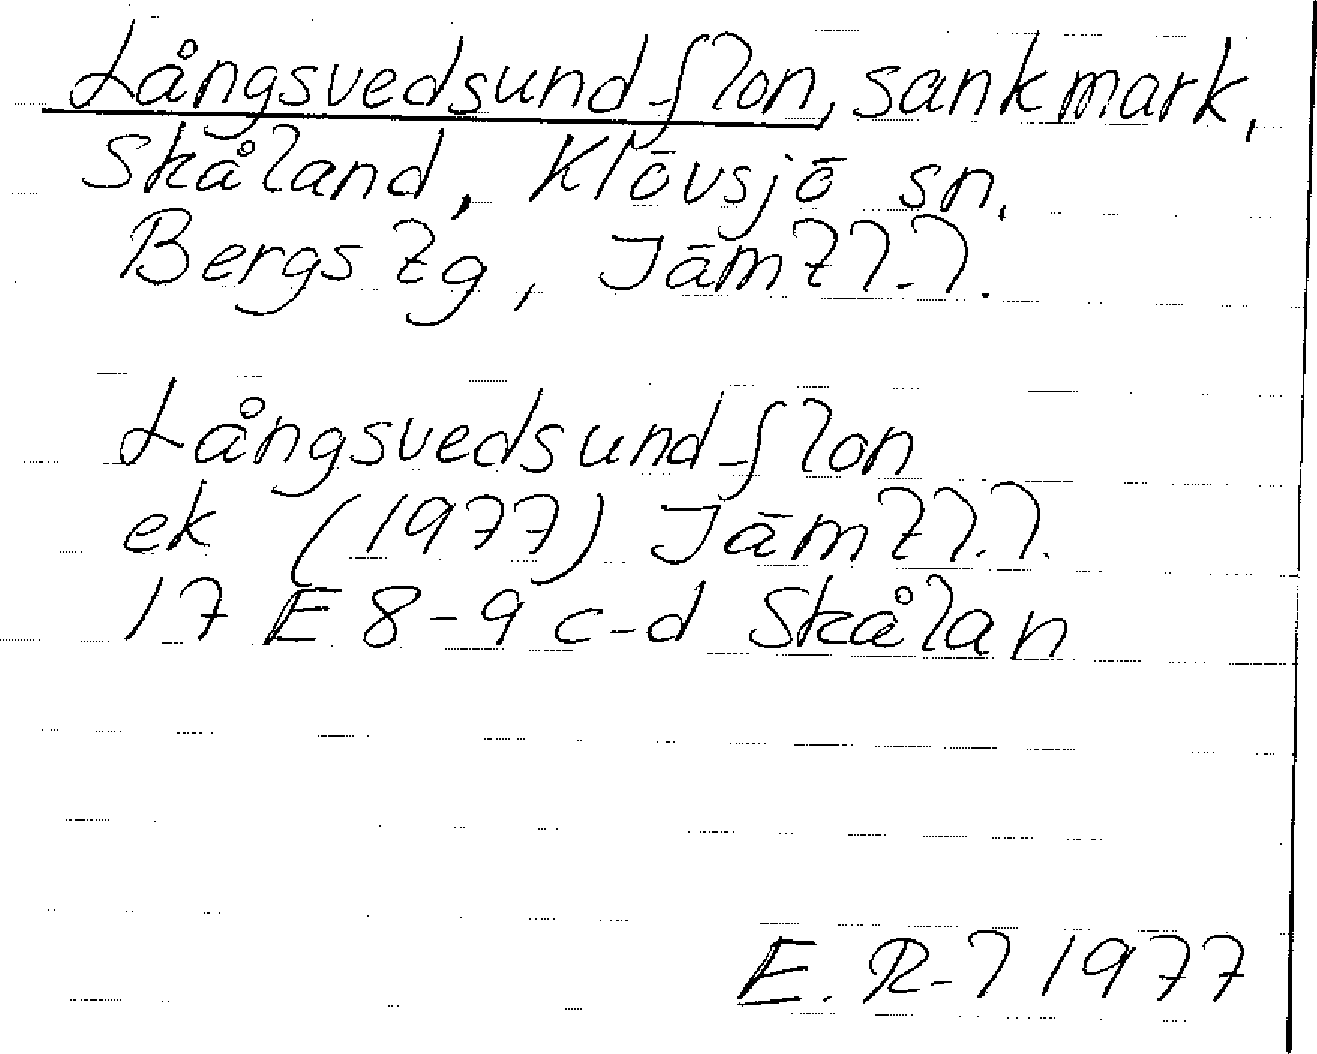 Långsvedsundflon, sankmark,
Skåland, Klövsjö sn,
Bergs tg, Jämtl.l.
Långsvedsundflon
ek (1977) Jämtl.l.
17 E 8-9 c-d Skålan
E. R-l 1977